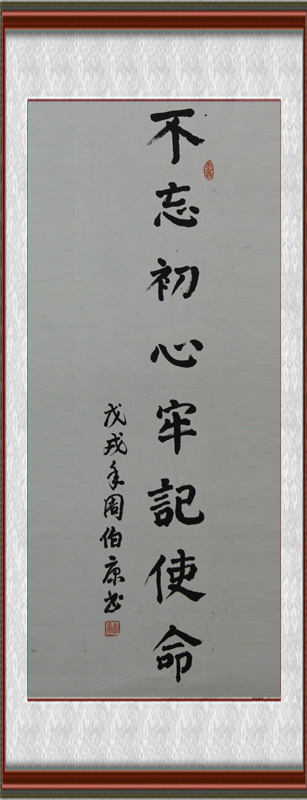 不忘初心牢記使命
戊戌年周伯康书